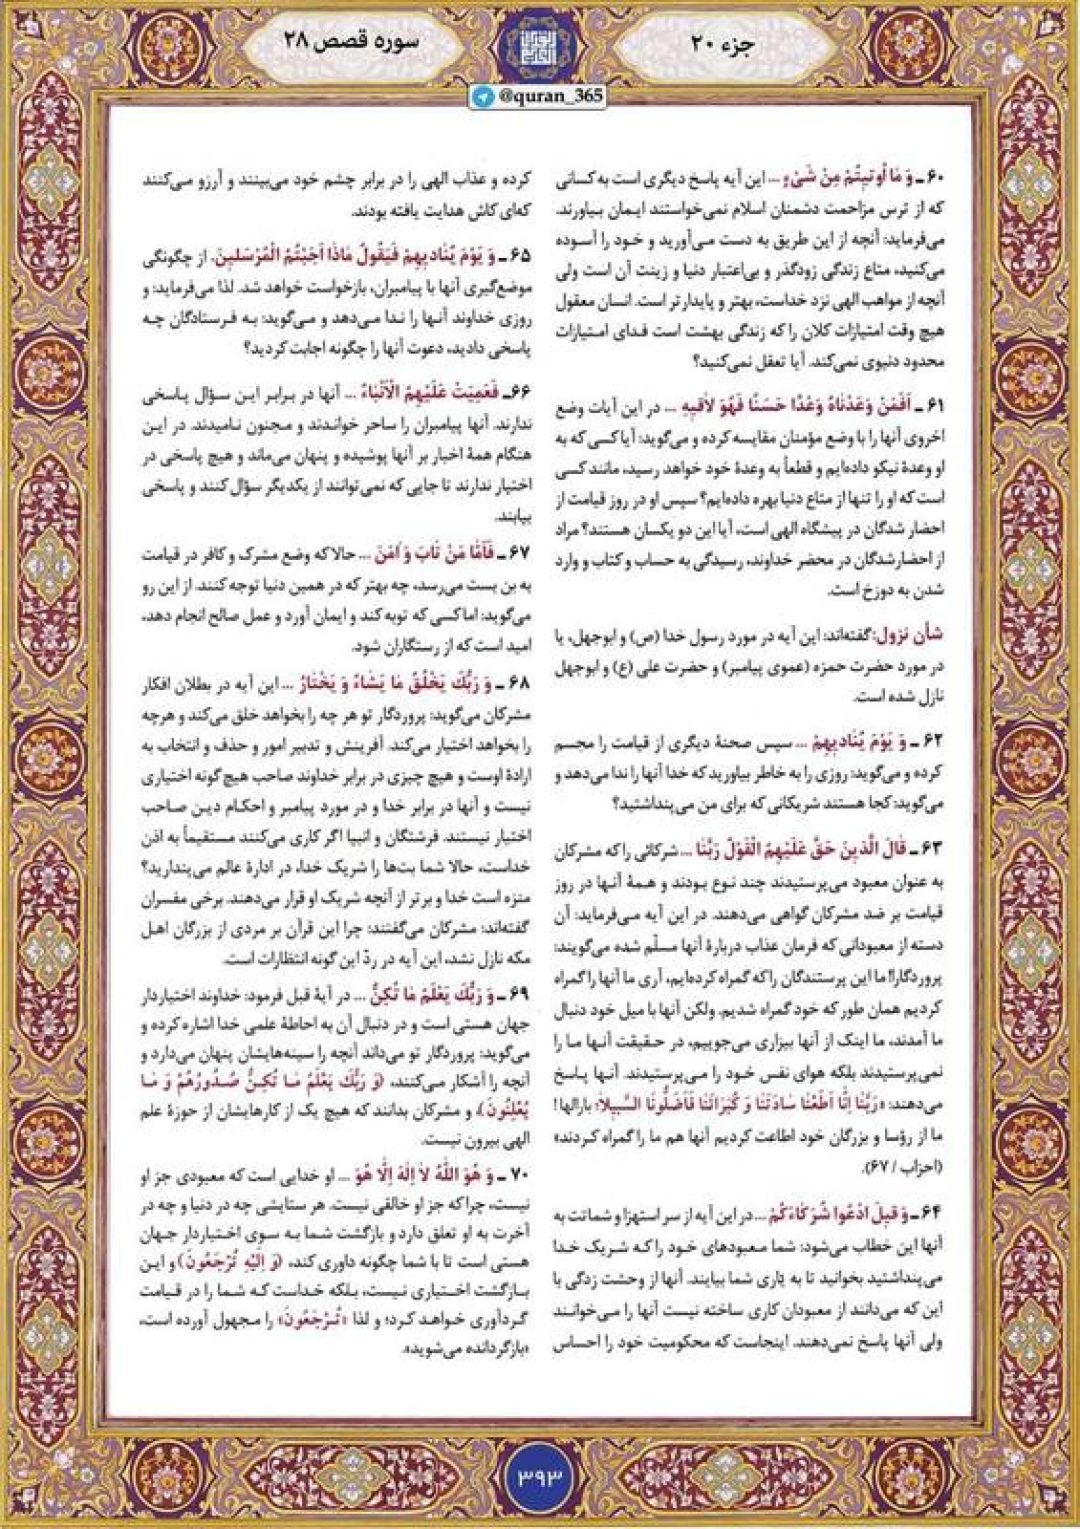 جزء ۲۰
سوره قصص ۲۸
@quran_365
۶۰ـ وَ مٰا اُوتیتُمْ مِنْ شَیْءٍ ... این آیه پاسخ دیگری است به کسانی
که از ترس مزاحمت دشمنان اسلام نمی‌خواستند ایمان بیاورند.
می‌فرماید: آنچه از این طریق به دست می‌آورید و خود را آسوده
می‌کنید، متاع زندگی زودگذر و بی‌اعتبار دنیا و زینت آن است ولی
آنچه از مواهب الهی نزد خداست، بهتر و پایدارتر است. انسان معقول
هیچ وقت امتیازات کلان را که زندگی بهشت است فدای امتیازات
محدود دنیوی نمی‌کند. آیا تعقل نمی‌کنید؟
۶۱ـ اَفَمَنْ وَعَدْنٰاهُ وَعْدًا حَسَنًا فَهُوَ لاٰقیهِ ... در این آیات وضع
اخروی آنها را با وضع مؤمنان مقایسه کرده و می‌گوید: آیا کسی که به
او وعدهٔ نیکو داده‌ایم و قطعاً به وعدهٔ خود خواهد رسید، مانند کسی
است که او را تنها از متاع دنیا بهره داده‌ایم؟ سپس او در روز قیامت از
احضار شدگان در پیشگاه الهی است، آیا این دو یکسان هستند؟ مراد
از احضارشدگان در محضر خداوند، رسیدگی به حساب و کتاب و وارد
شدن به دوزخ است.
شأن نزول: گفته‌اند: این آیه در مورد رسول خدا (ص) و ابوجهل، یا
در مورد حضرت حمزه (عموی پیامبر) و حضرت علی (ع) و ابوجهل
نازل شده است.
۶۲ـ وَ یَوْمَ یُنٰادیهِمْ ... سپس صحنهٔ دیگری از قیامت را مجسم
کرده و می‌گوید: روزی را به خاطر بیاورید که خدا آنها را ندا می‌دهد و
می‌گوید: کجا هستند شریکانی که برای من می‌پنداشتید؟
۶۳ـ قٰالَ الَّذینَ حَقَّ عَلَیْهِمُ الْقَوْلُ رَبَّنٰا ... شرکائی را که مشرکان
به عنوان معبود می‌پرستیدند چند نوع بودند و همهٔ آنها در روز
قیامت بر ضد مشرکان گواهی می‌دهند. در این آیه می‌فرماید: آن
دسته از معبودانی که فرمان عذاب دربارهٔ آنها مسلّم شده می‌گویند:
پروردگارا! ما این پرستندگان را که گمراه کرده‌ایم، آری ما آنها را گمراه
کردیم همان طور که خود گمراه شدیم. ولکن آنها با میل خود دنبال
ما آمدند، ما اینک از آنها بیزاری می‌جوییم، در حقیقت آنها ما را
نمی‌پرستیدند بلکه هوای نفس خود را می‌پرستیدند. آنها پاسخ
می‌دهند: «رَبَّنٰا اِنّٰا اَطَعْنٰا سٰادَتَنٰا وَ کُبَرٰائَنٰا فَاَضَلُّونَا السَّبیلاٰ؛ بارالها!
ما از رؤسا و بزرگان خود اطاعت کردیم آنها هم ما را گمراه کردند»
(احزاب / ۶۷).
۶۴ـ وَ قیلَ ادْعُوا شُرَکٰاءَکُمْ ... در این آیه از سر استهزا و شماتت به
آنها این خطاب می‌شود: شما معبودهای خود را که شریک خدا
می‌پنداشتید بخوانید تا به یاری شما بیایند. آنها از وحشت زدگی با
این که می‌دانند از معبودان کاری ساخته نیست آنها را می‌خوانند
ولی آنها پاسخ نمی‌دهند. اینجاست که محکومیت خود را احساس
کرده و عذاب الهی را در برابر چشم خود می‌بینند و آرزو می‌کنند
که‌ای کاش هدایت یافته بودند.
۶۵ـ وَ یَوْمَ یُنٰادیهِمْ فَیَقُولُ مٰاذٰا اَجَبْتُمُ الْمُرْسَلینَ. از چگونگی
موضع‌گیری آنها با پیامبران، بازخواست خواهد شد. لذا می‌فرماید: و
روزی خداوند آنها را ندا می‌دهد و می‌گوید: به فرستادگان چه
پاسخی دادید، دعوت آنها را چگونه اجابت کردید؟
۶۶ـ فَعَمِیَتْ عَلَیْهِمُ الْاَنْبٰاءُ ... آنها در برابر این سؤال پاسخی
ندارند. آنها پیامبران را ساحر خواندند و مجنون نامیدند. در این
هنگام همهٔ اخبار بر آنها پوشیده و پنهان می‌ماند و هیچ پاسخی در
اختیار ندارند تا جایی که نمی‌توانند از یکدیگر سؤال کنند و پاسخی
بیابند.
۶۷ـ فَاَمّٰا مَنْ تٰابَ وَ اٰمَنَ ... حالا که وضع مشرک و کافر در قیامت
به بن بست می‌رسد، چه بهتر که در همین دنیا توجه کنند. از این رو
می‌گوید: اما کسی که توبه کند و ایمان آورد و عمل صالح انجام دهد،
امید است که از رستگاران شود.
۶۸ـ وَ رَبُّکَ یَخْلُقُ مٰا یَشٰاءُ وَ یَخْتٰارُ ... این آیه در بطلان افکار
مشرکان می‌گوید: پروردگار تو هر چه را بخواهد خلق می‌کند و هرچه
را بخواهد اختیار می‌کند. آفرینش و تدبیر امور و حذف و انتخاب به
ارادهٔ اوست و هیچ چیزی در برابر خداوند صاحب هیچ گونه اختیاری
نیست و آنها در برابر خدا و در مورد پیامبر و احکام دین صاحب
اختیار نیستند. فرشتگان و انبیا اگر کاری می‌کنند مستقیماً به اذن
خداست، حالا شما بت‌ها را شریک خدا، در ادارهٔ عالم می‌پندارید؟
منزه است خدا و برتر از آنچه شریک او قرار می‌دهند. برخی مفسران
گفته‌اند: مشرکان می‌گفتند: چرا این قرآن بر مردی از بزرگان اهل
مکه نازل نشد، این آیه در ردّ این گونه انتظارات است.
۶۹ـ وَ رَبُّکَ یَعْلَمُ مٰا تُکِنُّ ... در آیهٔ قبل فرمود: خداوند اختیاردار
جهان هستی است و در دنبال آن به احاطهٔ علمی خدا اشاره کرده و
می‌گوید: پروردگار تو می‌داند آنچه را سینه‌هایشان پنهان می‌دارد و
آنچه را آشکار می‌کنند، (وَ رَبُّکَ یَعْلَمُ مٰا تُکِنُّ صُدُورُهُمْ وَ مٰا
یُعْلِنُونَ)، و مشرکان بدانند که هیچ یک از کارهایشان از حوزهٔ علم
الهی بیرون نیست.
۷۰ـ وَ هُوَ اللّٰهُ لاٰ اِلٰهَ اِلّٰا هُوَ ... او خدایی است که معبودی جز او
نیست، چرا که جز او خالقی نیست. هر ستایشی چه در دنیا و چه در
آخرت به او تعلق دارد و بازگشت شما به سوی اختیاردار جهان
هستی است تا با شما چگونه داوری کند، (وَ اِلَیْهِ تُرْجَعُونَ) و این
بازگشت اختیاری نیست، بلکه خداست که شما را در قیامت
گردآوری خواهد کرد؛ و لذا «تُرْجَعُونَ» را مجهول آورده است،
«بازگردانده می‌شوید».
۳۹۳